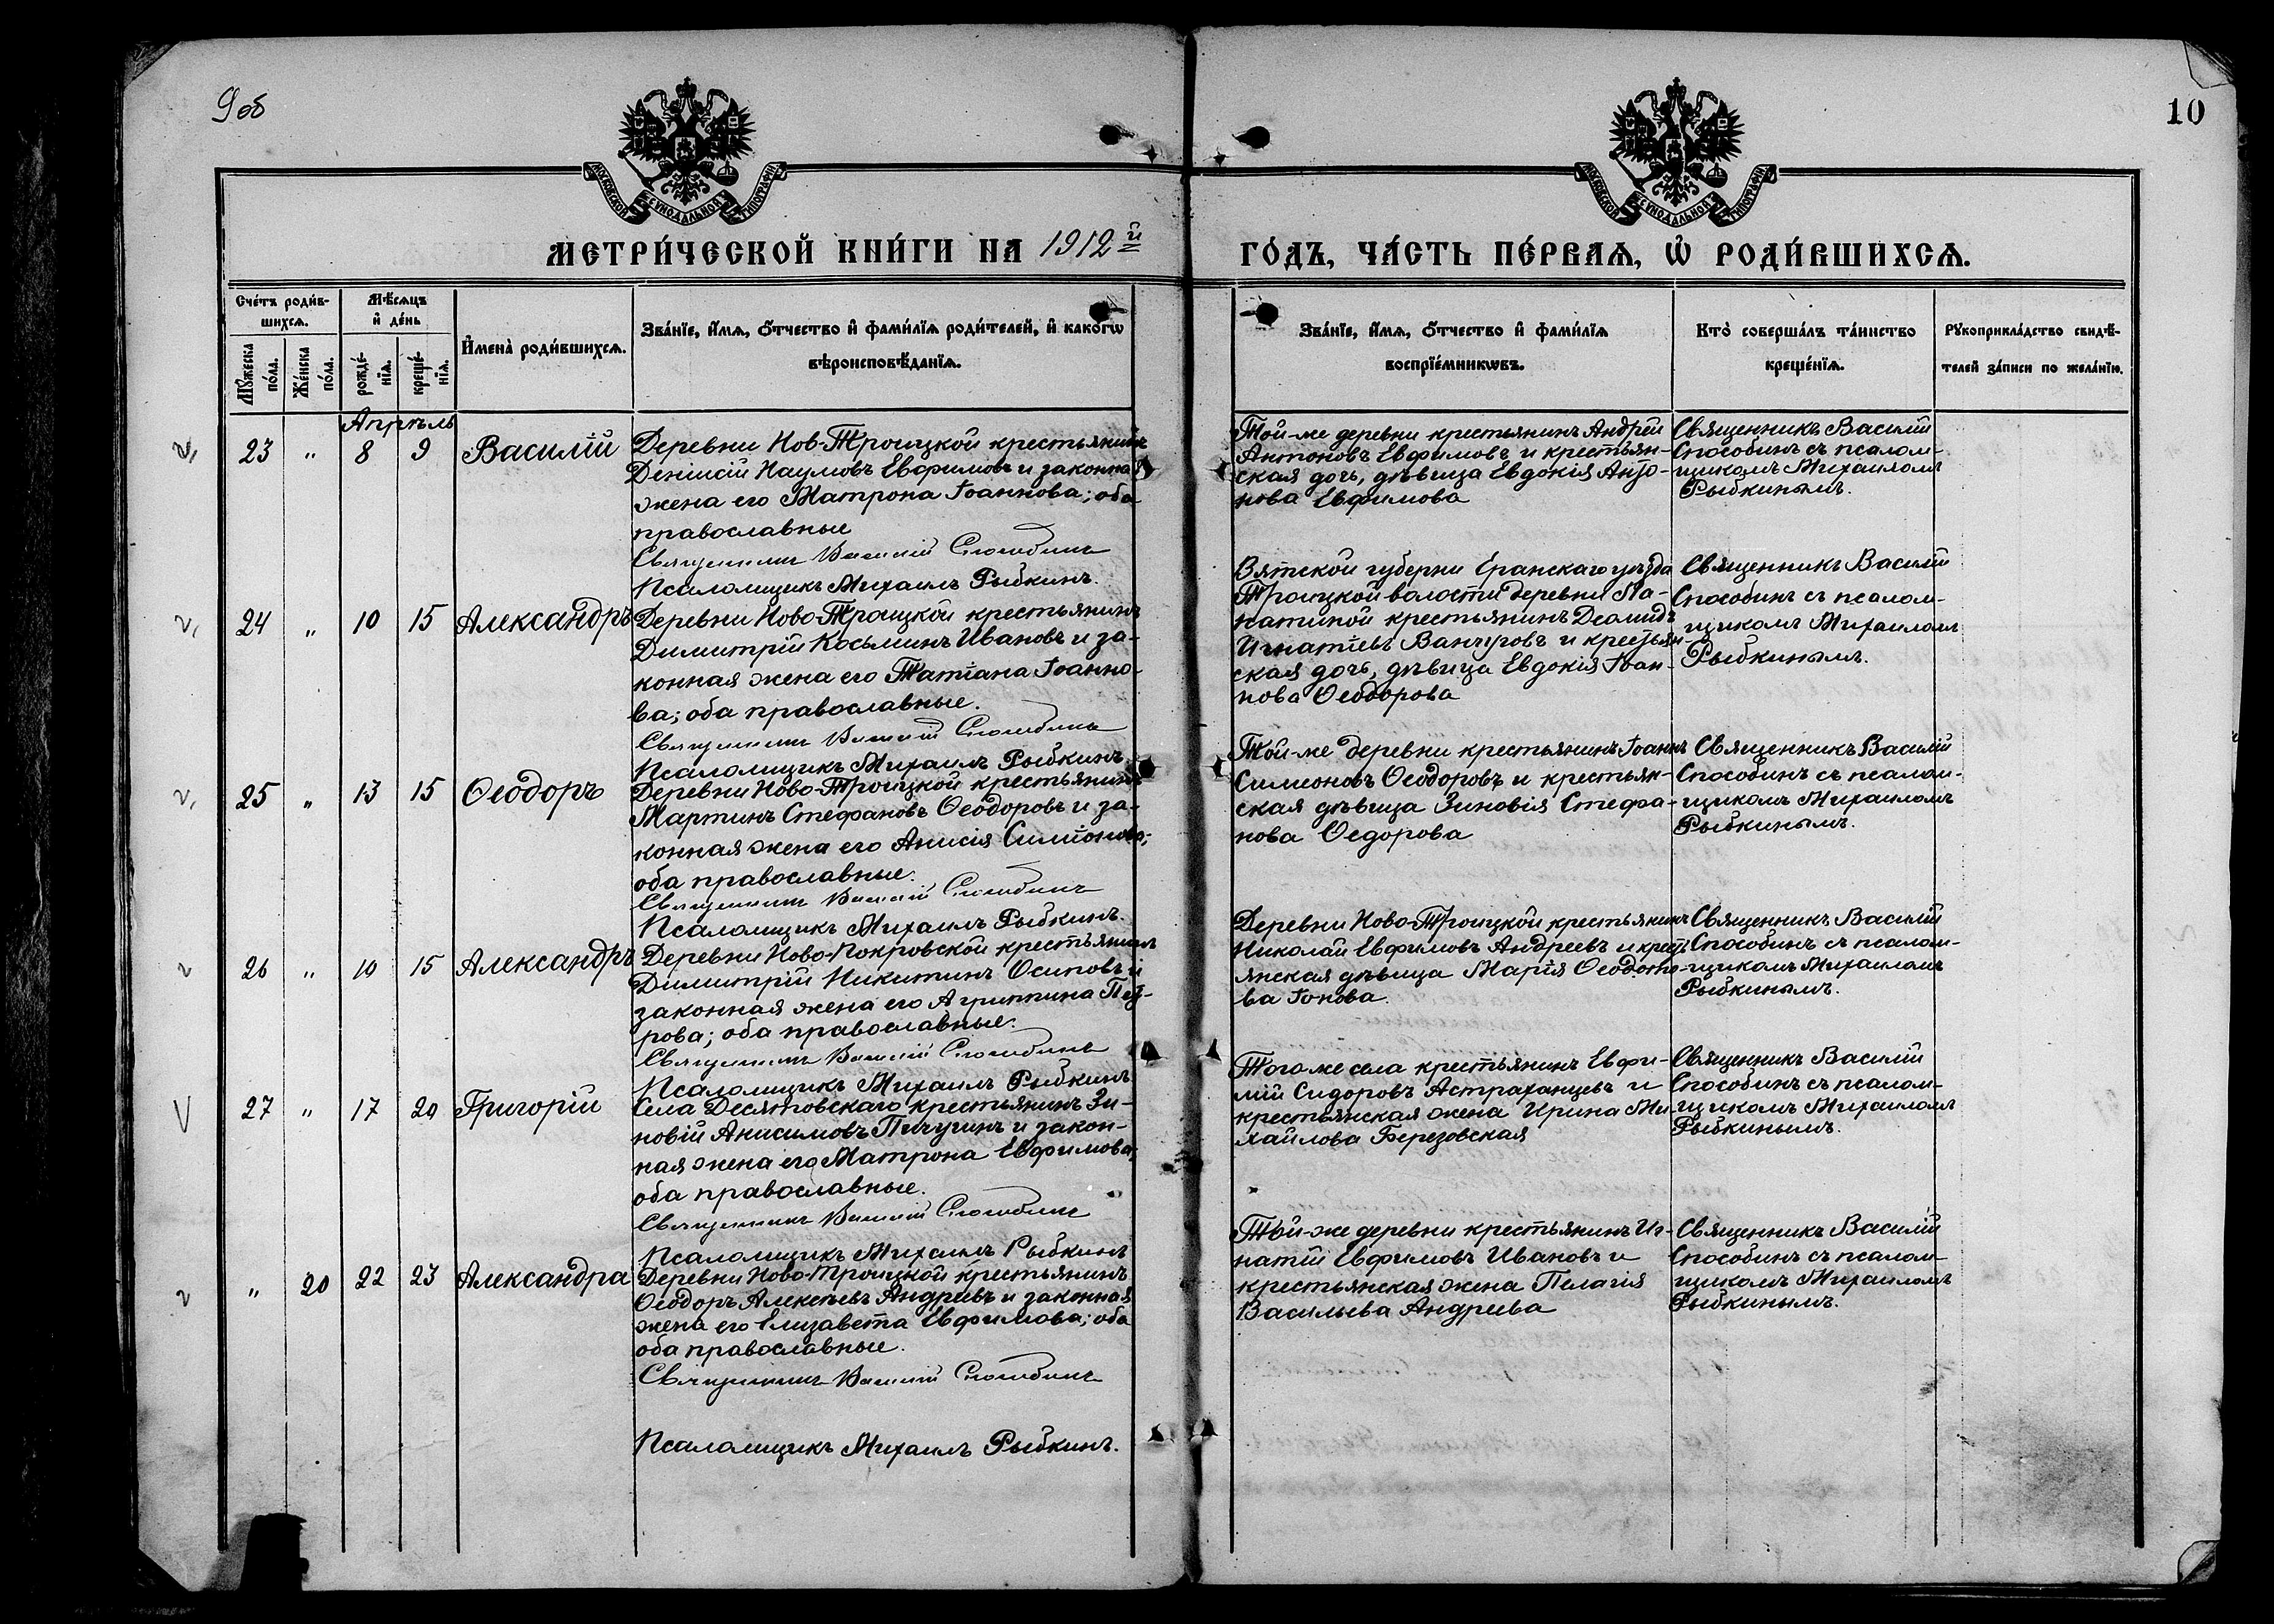 9 об
10
МОСКОВСКОЙ СѴНОДАЛЬНОЙ ТИПОГРАФІИ
МОСКОВСКОЙ СѴНОДАЛЬНОЙ ТИПОГРАФІИ
МЕТРИ́ЧЕСКОЙ КНИ́ГИ НА 1912й
ГО́ДЪ, ЧА́СТЬ ПЕ́РВАѦ, Ѡ҆ РОДИ́ВШИХСѦ.
Сче́тъ роди́в-
шихсѧ.
Мꙋ́жеска
по́ла.
Же́нска
по́ла.
Мѣ́сѧцъ
и҆ де́нь
рожде́-
нїѧ.
креще́-
нїѧ.
И҆мена̀ роди́вшихсѧ.
Зва́нїе, и҆́мѧ, ѻ҆́тчество и҆ фами́лїѧ роди́телей, и҆ како́гѡ
вѣроисповѣ́данїѧ.
Зва́нїе, и҆́мѧ, ѻ҆́тчество и҆ фами́лїѧ
воспрїе́мникѡвъ.
Кто̀ соверша́лъ та́инство
креще́нїѧ.
Рꙋкоприкла́дство свидѣ́-
телей за́писи по жела́нїю.
Апрѣль
23 " 8 9 Василій
Деревни Нов-Троицкой крестьянинъ
Денисій Наумовъ Евфимовъ и законна
жена его Матрона Іоаннова; оба
православные
Священникъ Василій Способинъ
Псаломщикъ Михаилъ Рыбкинъ.
Той-же деревни крестьянинъ Андрей
Антоновъ Евфимовъ и крестьян-
ская дочь, дѣвица Евдокія Анто-
нова Евфимова
Священникъ Василій
Способинъ съ псалом-
щикомъ Михаиломъ
Рыбкинымъ.
24 " 10 15 Александръ
Деревни Ново-Троицкой крестьянинъ
Димитрій Косьминъ Ивановъ и за-
конная жена его Татіана Іоанно-
ва; оба православные.
Священникъ Василій Способинъ
Псаломщикъ Михаилъ Рыбкинъ
Вятской губерни Еранскаго уѣзда
Троицкой волости деревни Ла-
патиной крестьянинъ Деомидъ
Игнатіевъ Ванчуровъ и крестьян-
ская дочь, дѣвица Евдокія Іоан-
нова Ѳеодорова
Священникъ Василій
Способинъ съ псалом-
щикомъ Михаиломъ
Рыбкинымъ.
25 " 13 15 Ѳеодоръ
Деревни Ново-Троицкой крестьянинъ
Мартинъ Стефановъ Ѳеодоровъ и за-
конная жена его Анисія Симіонова;
оба православные.
Священникъ Василій Способинъ
Псаломщикъ Михаилъ Рыбкинъ.
Той-же деревни крестьянинъ Іоаннъ
Симеоновъ Ѳеодоровъ и крестьян-
ская дѣвица Зиновія Стефа-
нова Ѳедорова
Священникъ Василій
Способинъ съ псалом-
щикомъ Михаиломъ
Рыбкинымъ.
26 " 10 15 Александръ
Деревни Ново-Покровской крестьянинъ
Димитрій Никитинъ Осиповъ и
законная жена его Агриппина Пет-
рова; оба православные.
Священникъ Василій Способинъ
Псаломщикъ Михаилъ Рыбкинъ
Деревни Ново-Троицкой крестьянинъ
Николай Евфимовъ Андреевъ и крест-
янская дѣвица Марія Ѳеодото-
ва Іонова.
Священникъ Василій
Способинъ съ псалом-
щикомъ Михаиломъ
Рыбкинымъ.
27 " 17 20 Григорій
Села Десятовскаго крестьянинъ Зи-
новій Анисимовъ Пичугинъ и закон-
ная жена его Матрона Евфимова;
оба православные.
Священникъ Василій Способинъ
Псаломщикъ Михаилъ Рыбкинъ
Того же села крестьянинъ Евфи-
мій Сидоровъ Астраханцевъ и
крестьянская жена Ирина Ми-
хайлова Березовская
Священникъ Василій
Способинъ съ псалом-
щикомъ Михаиломъ
Рыбкинымъ.
" 20 22 23 Александра
Деревни Ново-Троицкой крестьянинъ
Ѳеодоръ Алексѣевъ Андреевъ и законная
жена его Елизавета Евфимова; оба
оба православные.
Священникъ Василій Способинъ
Псаломщикъ Михаилъ Рыбкинъ.
Той-же деревни крестьянинъ Иг-
натій Евфимовъ Ивановъ и
крестьянская жена Пелагія
Васильева Андреева
Священникъ Василій
Способинъ съ псалом-
щикомъ Михаиломъ
Рыбкинымъ.